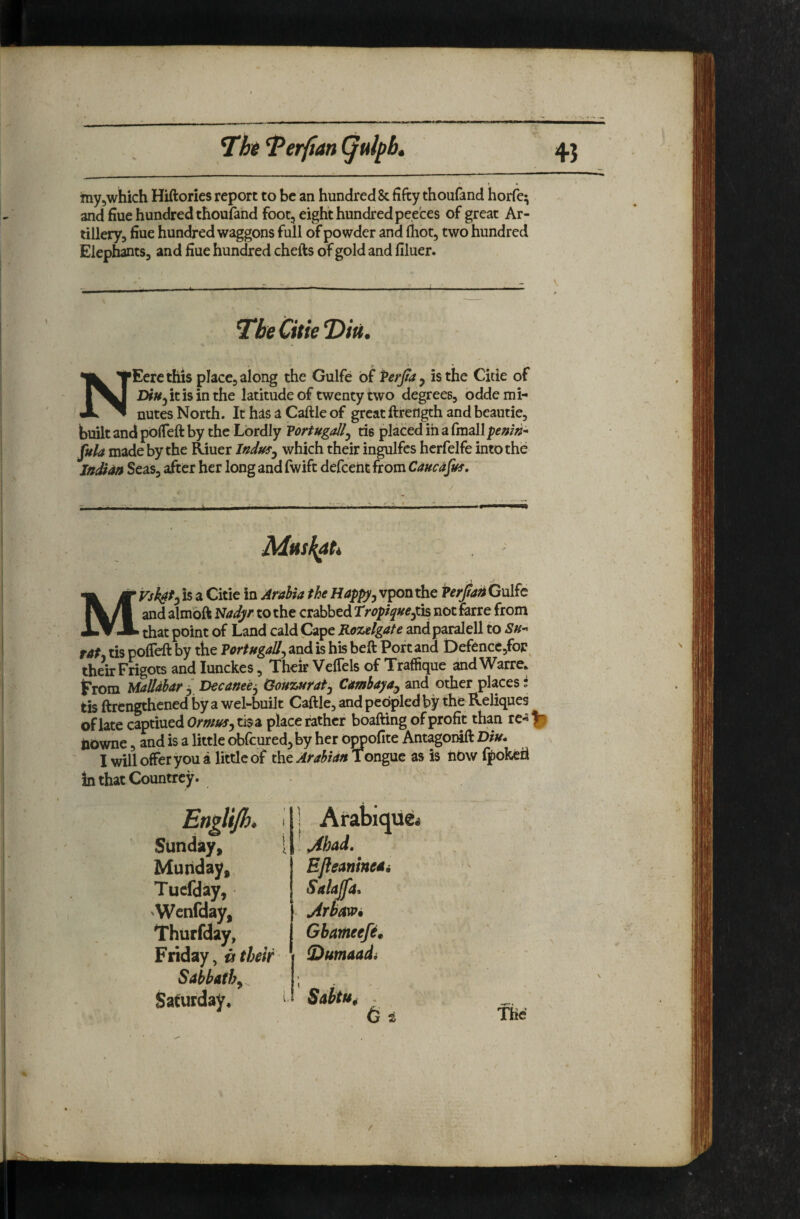 The Persian Gulph. 43
my,which Histories report to be an hundred & fifty thousand horse;
and fiue hundred thousand foot, eight hundred peeces of great Ar-
tillery, fiue hundred waggons full of powder and shot, two hundred
Elephants, and fiue hundred chests of gold and siluer.
The Citie Diu.
NEere this place, along the Gulfe of Persia, is the Citie of
Diu, it is in the latitude of twenty two degrees, odde mi-
nutes North. It has a Castle of great strength and beautie,
built and possest by the Lordly Portugall, tis placed in a small penin-
sula made by the Riuer Indus, which their ingulfes herselfe into the
Indian Seas, after her long and swift descent from Caucasus.
Muskat.
MVskat, is a Citie in Arabia the Happy, vpon the Persian Gulfe
and almost Nadyr to the crabbed Tropique,tis not farre from
that point of Land cald Cape Rozelgate and paralell to Su-
rat, tis possest by the Portugall, and is his best Port and Defence,for
their Frigots and Iunckes, Their Vessels of Traffique and Warre.
From Mallabar, Decanee, Gouzurat, Cambaya, and other places :
tis strengthened by a wel-built Castle, and peopled by the Reliques
of late captiued Ormus, tis a place rather boasting of profit than re-
nowne, and is a little obscured, by her opposite Antagonist Diu.
I will offer you a little of the Arabian Tongue as is now spoken
in that Countrey.
English. Arabique.
Sunday, Ahad.
Munday, Esteaninea.
Tuesday, Salassa.
Wensday, Arbaw.
Thursday, Ghameese.
Friday, is their Dumaad.
Sabbath,
Saturday. Sabtu.
G 2 The